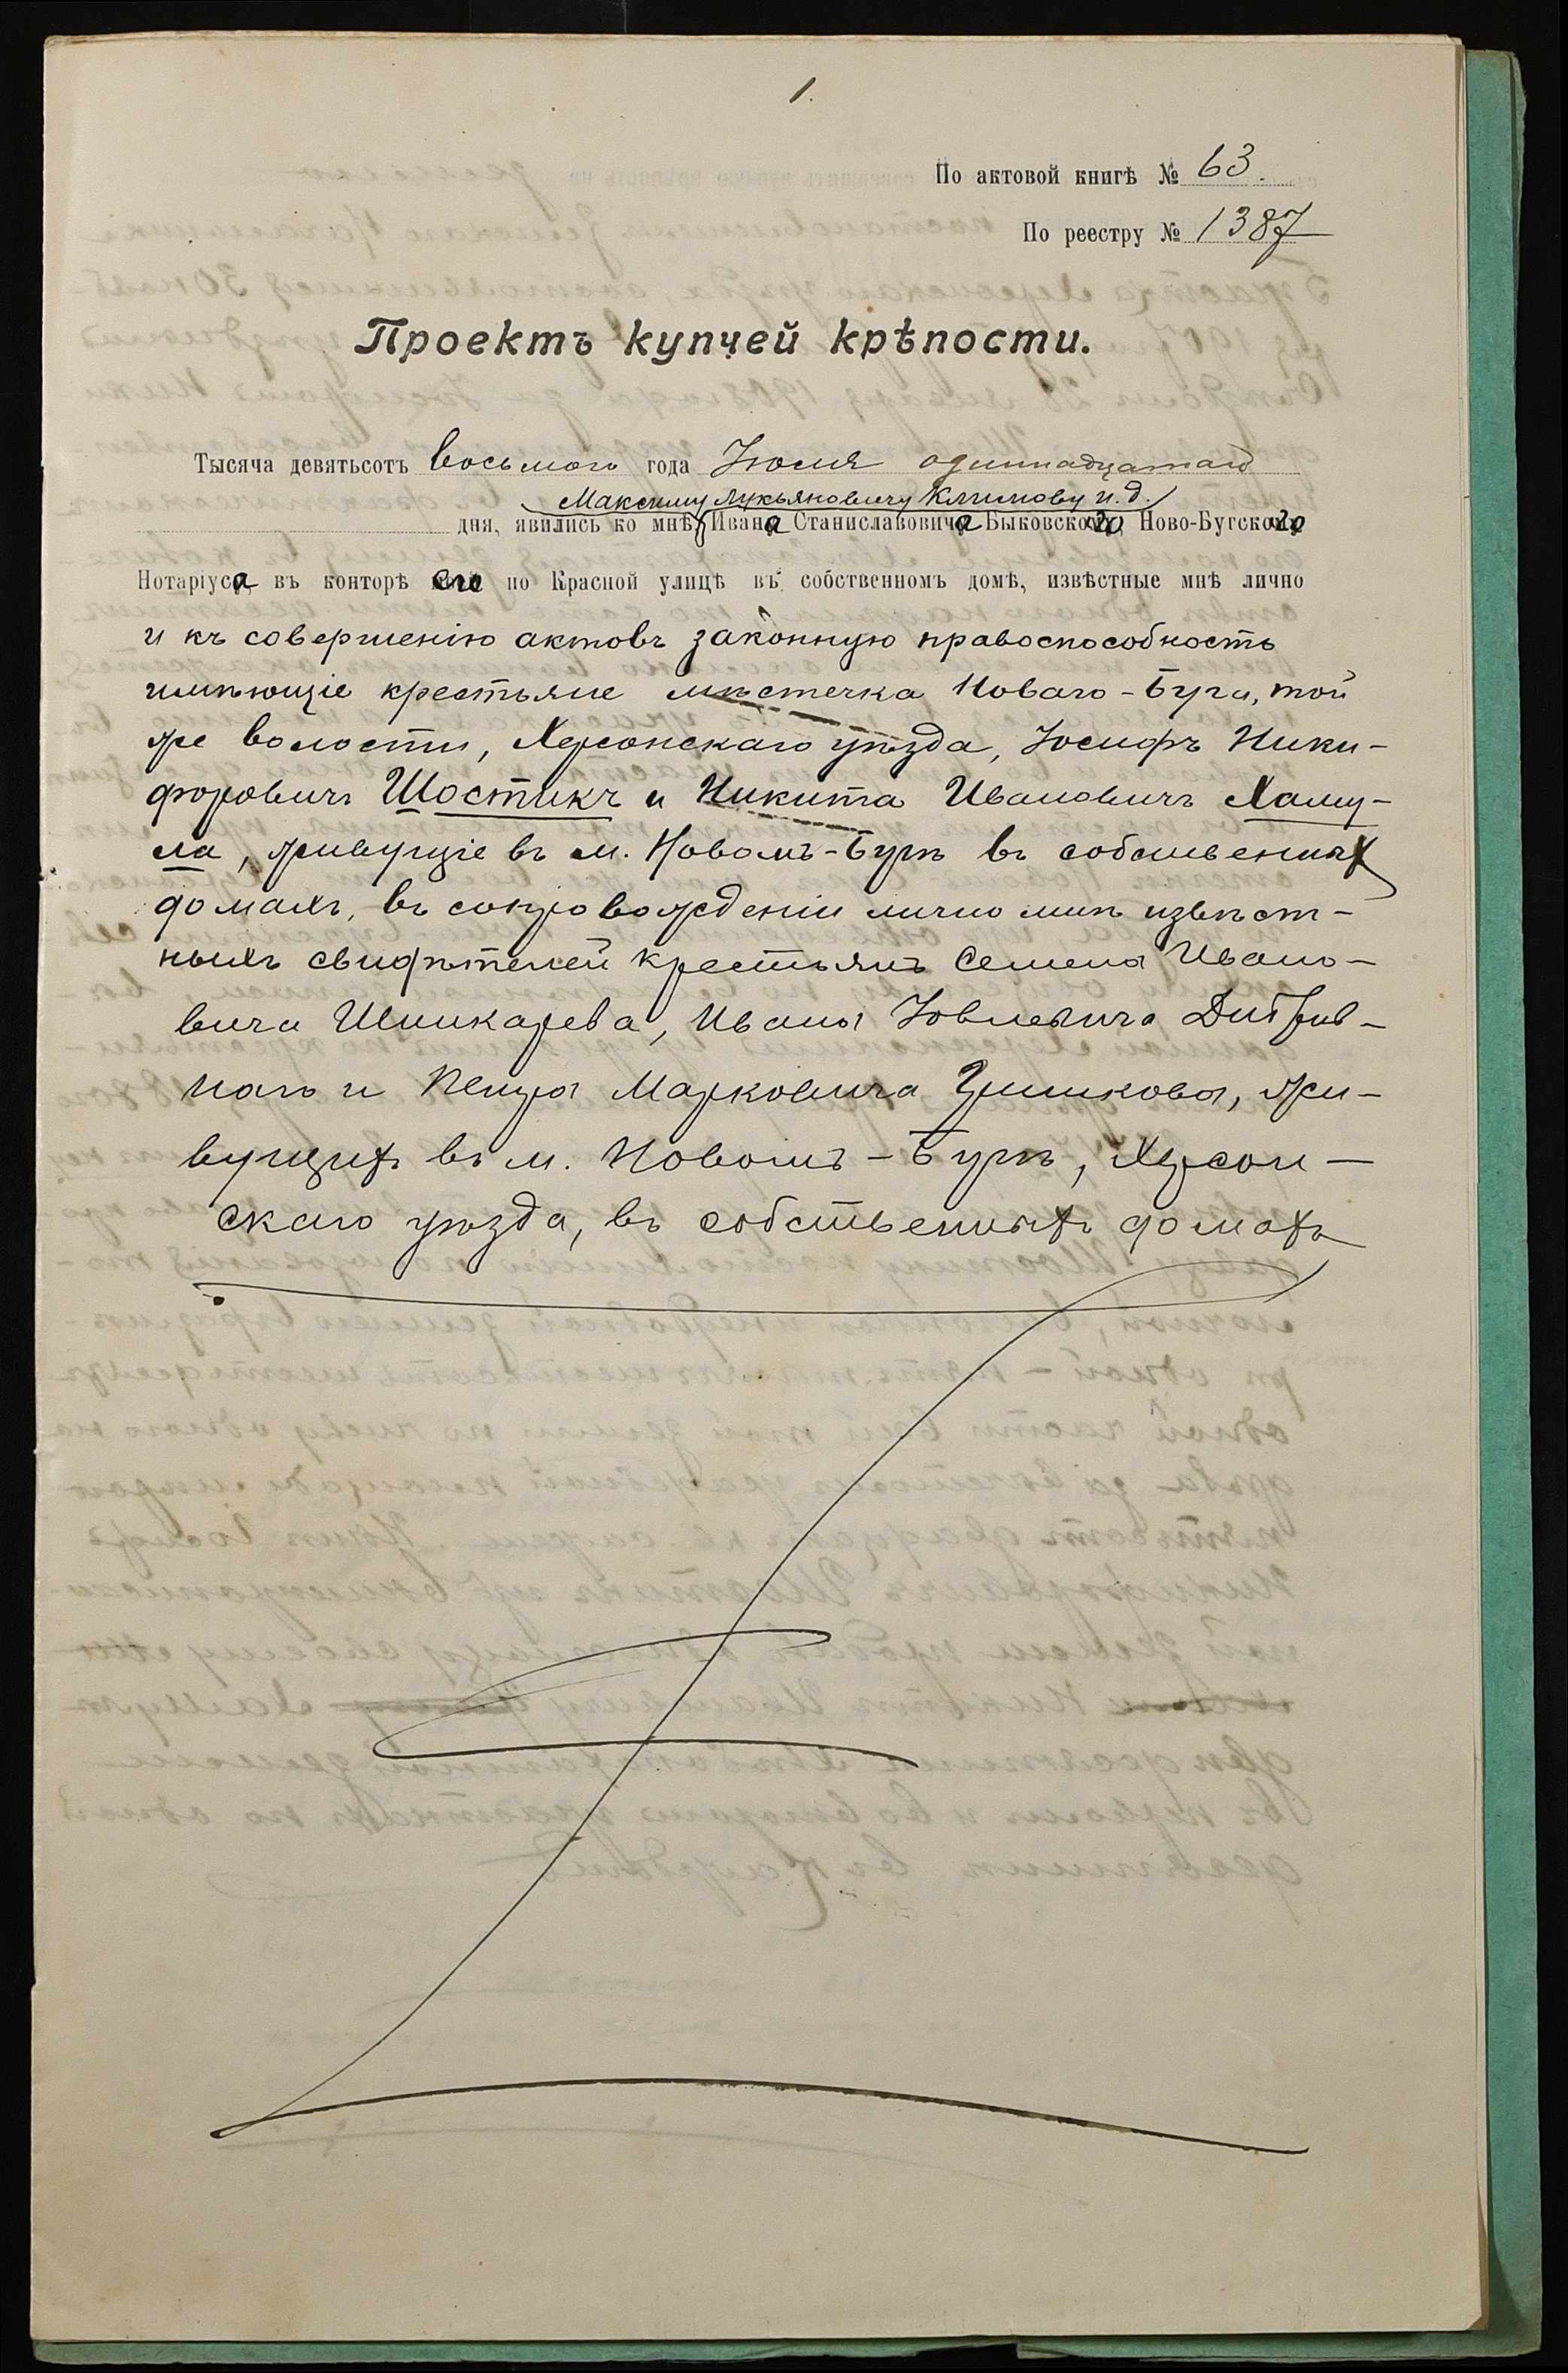 1.
По актовой книгѣ № 63.
По реестру № 1387
Проектъ купчей крѣпости.
Тысяча девятьсотъ восьмого года Іюля одиннадцатаго
Максиму Лукьяновичу Климову и.д.
дня, явились ко мнѣ, Ивана Станиславовича Быковского, Ново-Бугского
Нотаріуса, въ конторѣ его по Красной улицѣ въ собственномъ домѣ, извѣстные мнѣ лично
и къ совершенію актовъ законную правоспособность
имѣющіе крестьяне мѣстечка Новаго-Буга, той
же волости, Херсонскаго уѣзда, Іосифъ Ники-
форовичъ Шостикъ и Никита Ивановичъ Хаму-
ла, живущіе въ м. Новомъ-Бугѣ въ собственных
домахъ, въ сопровожденіи лично мнѣ извѣст-
ныхъ свидѣтелей крестьянъ Семена Ивано-
вича Шинкарева, Ивана Іовлевича
и Петра Марковича Гришкова, жи-
вущихъ въ м. Новомъ-Бугѣ, Херсон-
скаго уѣзда, въ собственныхъ домахъ